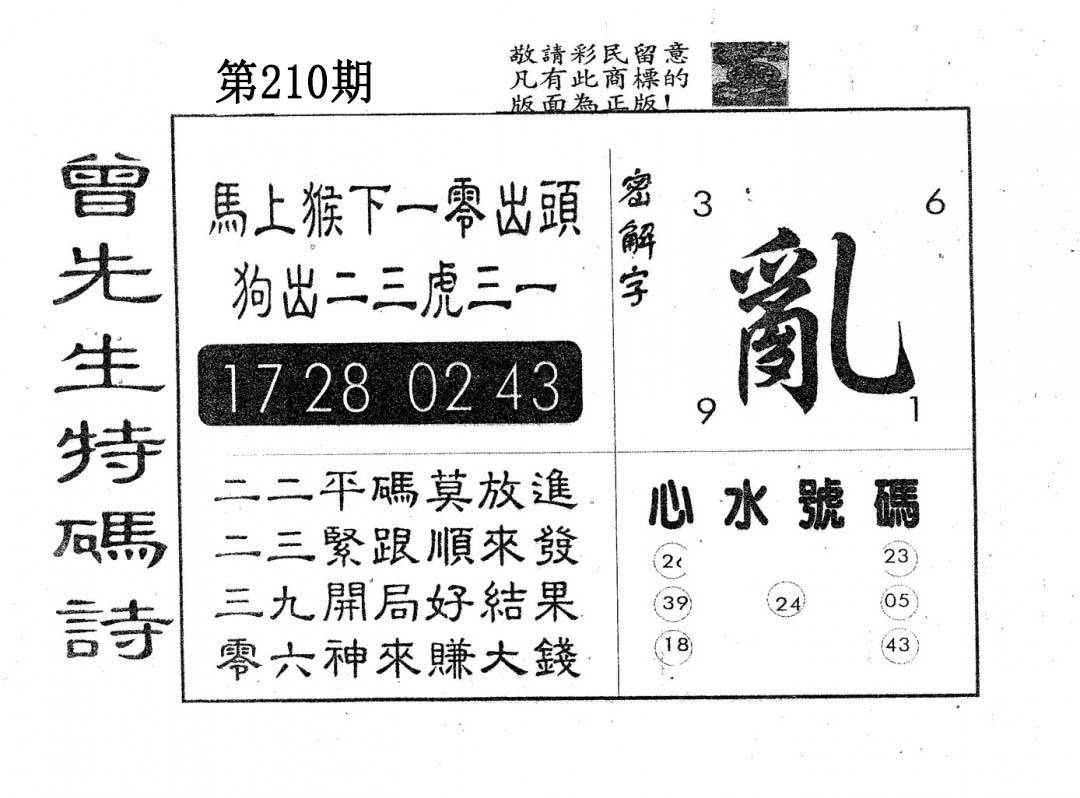 第210期
敬請彩民留意
凡有此商標的
版面為正版!
曾先生特碼詩
馬上猴下一零出頭
狗出二三虎三一
17 28 02 43
密解字
3 6
亂
9 1
二二平碼莫放進
二三緊跟順來發
三九開局好結果
零六神來賺大錢
心水號碼
26 23
39 24 05
18 43